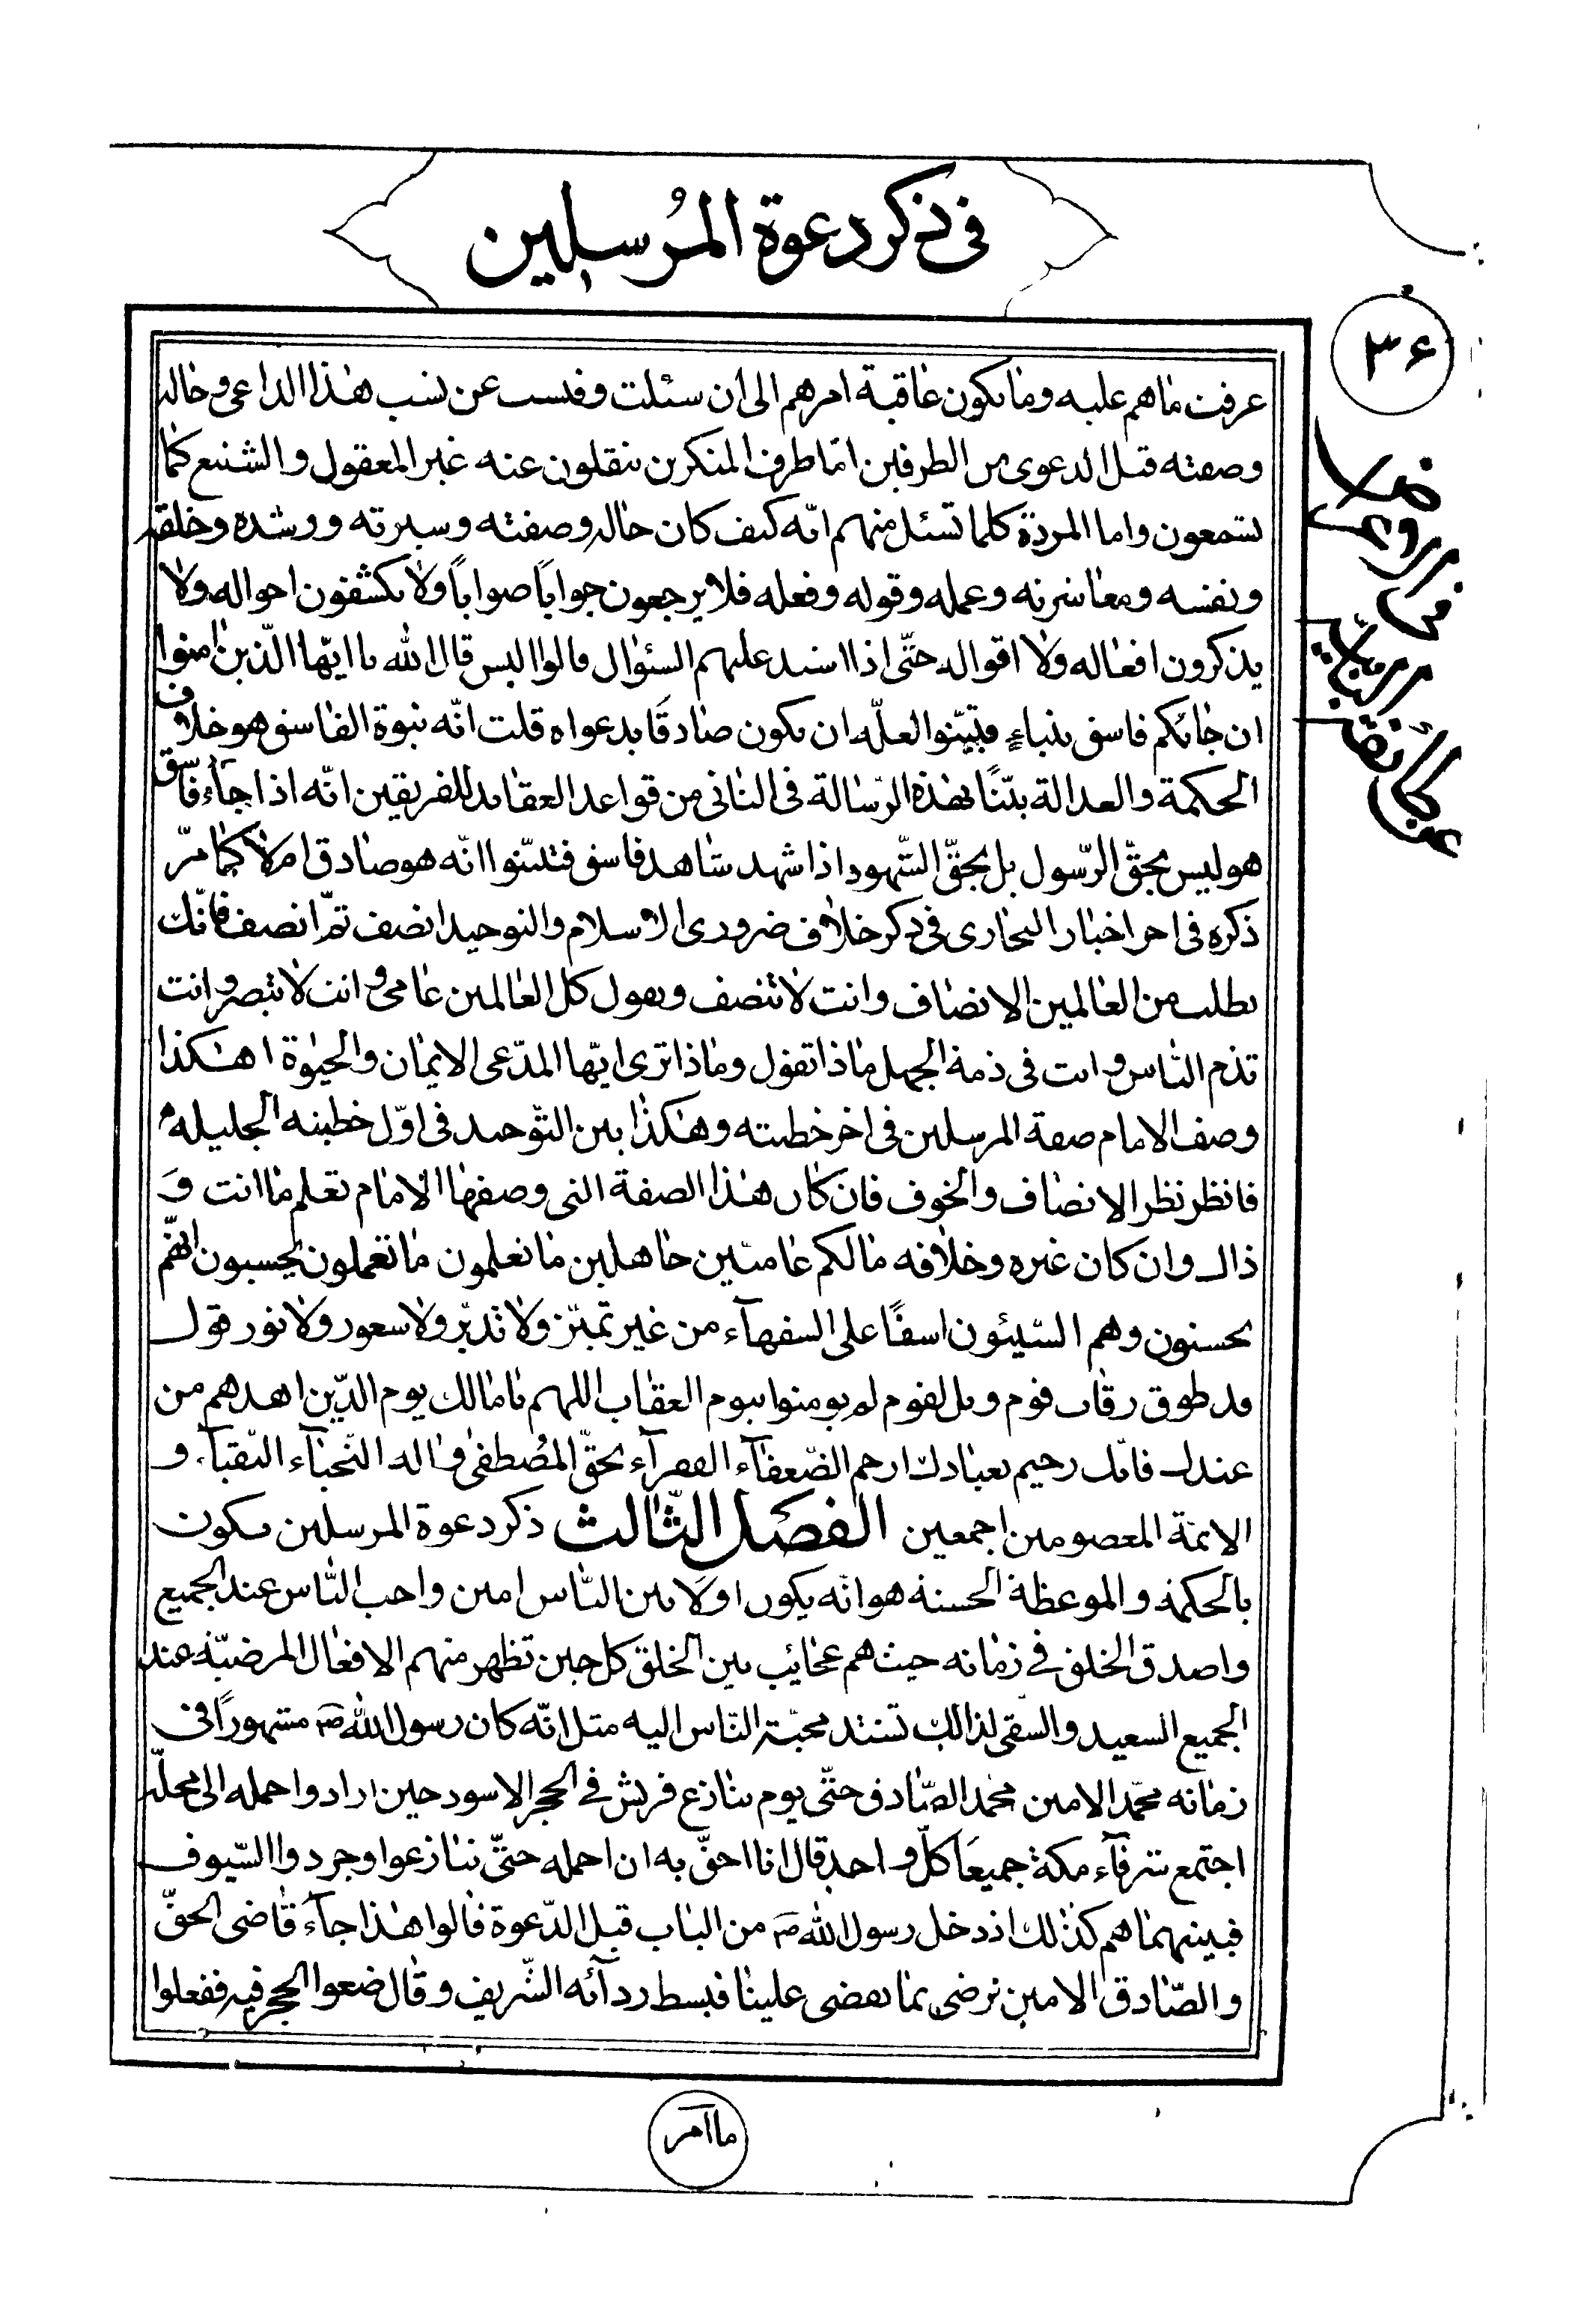 فى ذكر دعوة المُرسلين
٣۶
عرفت ماهم عليه وما يكون عاقبة امرهم الى ان سئلت وفتست عن نسب هذا الداعى وحاله
وصفته قبل الدعوى من الطرفين امّا طرف المنكرين ينقلون عنه غير المعقول والشنيع كما
تستمعون واما المردة كلما تسئل منهم انّه كيف كان حاله وصفته وسيرته ورشده وخلقه
ونفسه ومعاشرته وعمله وقوله وفعله فلا يرجعون جواباً صواباً ولا يكشفون احواله ولا
يذكرون افعاله ولا اقواله حتّى اذا اشتد عليهم السئوال قالوا اليس قال الله يا ايّها الّذين امنوا
ان جائكم فاسق بنباءٍ فتبيّنوا لعلّه ان يكون صادقاً بدعواه قلت انّه نبوة الفاسق هو خلاف
الحكمة والعدالة بيّنّا بهذه الرّسالة فى الثانى من قواعد العقايد للفريقين انّه اذا جآء فاسق
هو ليس بحقّ الرّسول بل بحقّ الشّهود اذا شهد شاهد فاسق فتبيّنوا انّه هو صادق ام لا كما مرّ
ذكره فى اخر اخبار البخارى فى ذكر خلاف ضرورى الاسلام والتوحيد انصف ثمّ انصف فانّك
تطلب من العالمين الانصاف وانت لا تنصف وتقول كل العالمين عامى وانت لا تبصر وانت
تذم الناس وانت فى ذمة الجهل ماذا تقول وماذا ترى ايّها المدّعى الايمان والحيوة اهكذا
وصف الامام صفة المرسلين فى اخر خطبته وهكذا بين التّوحيد فى اوّل خطبته الجليله
فانظر نظر الانصاف والخوف فان كان هذا الصفة التى وصفها الامام تعلم ما انت وَ
ذاك وان كان غيره وخلافه مالكم عاميّين جاهلين ما تعلمون ما تعملون يحسبون انهّم
يحسنون وهم السّيئون اسفًا على السفهآء من غير تميّز ولا تدبّر ولا شعور ولا نور قول
قد طوق رقاب قوم ويل لقوم لم يومنوا بيوم العقاب اللهم يا مالك يوم الدّين اهدهم من
عندك فانّك رحيم بعبادك ارحم الضّعفآء الفقرآء بحقّ المُصطفى واله النّجبآء النّقبآء و
الائمّة المعصومين اجمعين الفصل الثّالث ذكر دعوة المرسلين يكون
بالحكمة والموعظة الحسنة هو انّه يكون اولاً بين النّاس امين واحب النّاس عند الجميع
واصدق الخلق فى زمانه حيث هم عجايب بين الخلق كل حين تظهر منهم الافعال المرضيّة عند
الجميع السعيد والشقى لذالك تشتد محبّة النّاس اليه مثل انّه كان رسول الله ص مشهوراً فى
زمانه محمّد الامين محمّد الصّادق حتّى يوم تنازع قريش فى الحجر الاسود حين ارادوا حمله الى محلّه
اجتمع شرفآء مكة جميعاً كلّ واحد قال انا احقّ به ان احمله حتّى تنازعوا وجردوا السّيوف
فبينهما هم كذلك اذ دخل رسول الله ص من الباب قبل الدّعوة قالوا هذا جآء قاضى الحقّ
والصّادق الامين نرضى بما يقضى علينا فبسط ردآئه الشّريف وقال ضعوا الحجر فيه ففعلوا
ما امر